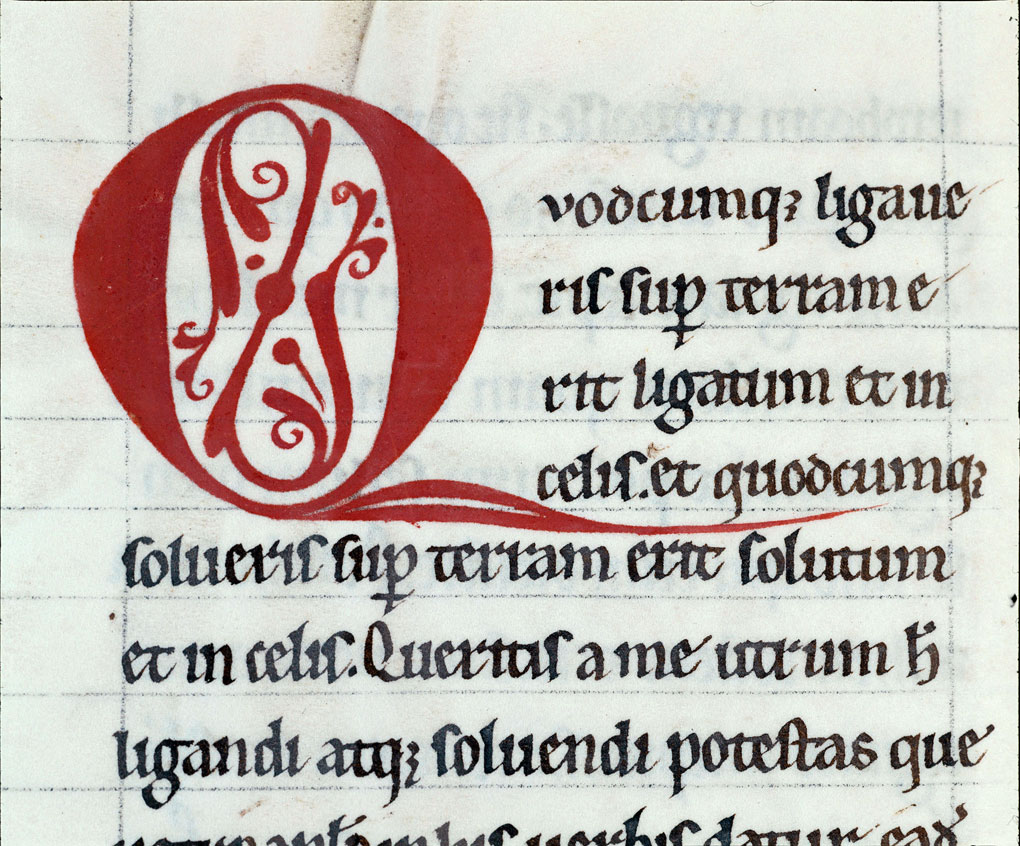 Qvodcumqꝫ ligaue
ris sup̱ terram e
rit ligatum et in
celis. et quodcumqꝫ
solueris sup̱ terram erit solutum
et in celis. Queritis a me utrum h̄
ligandi atqꝫ soluendi potestas que
uerbis datur